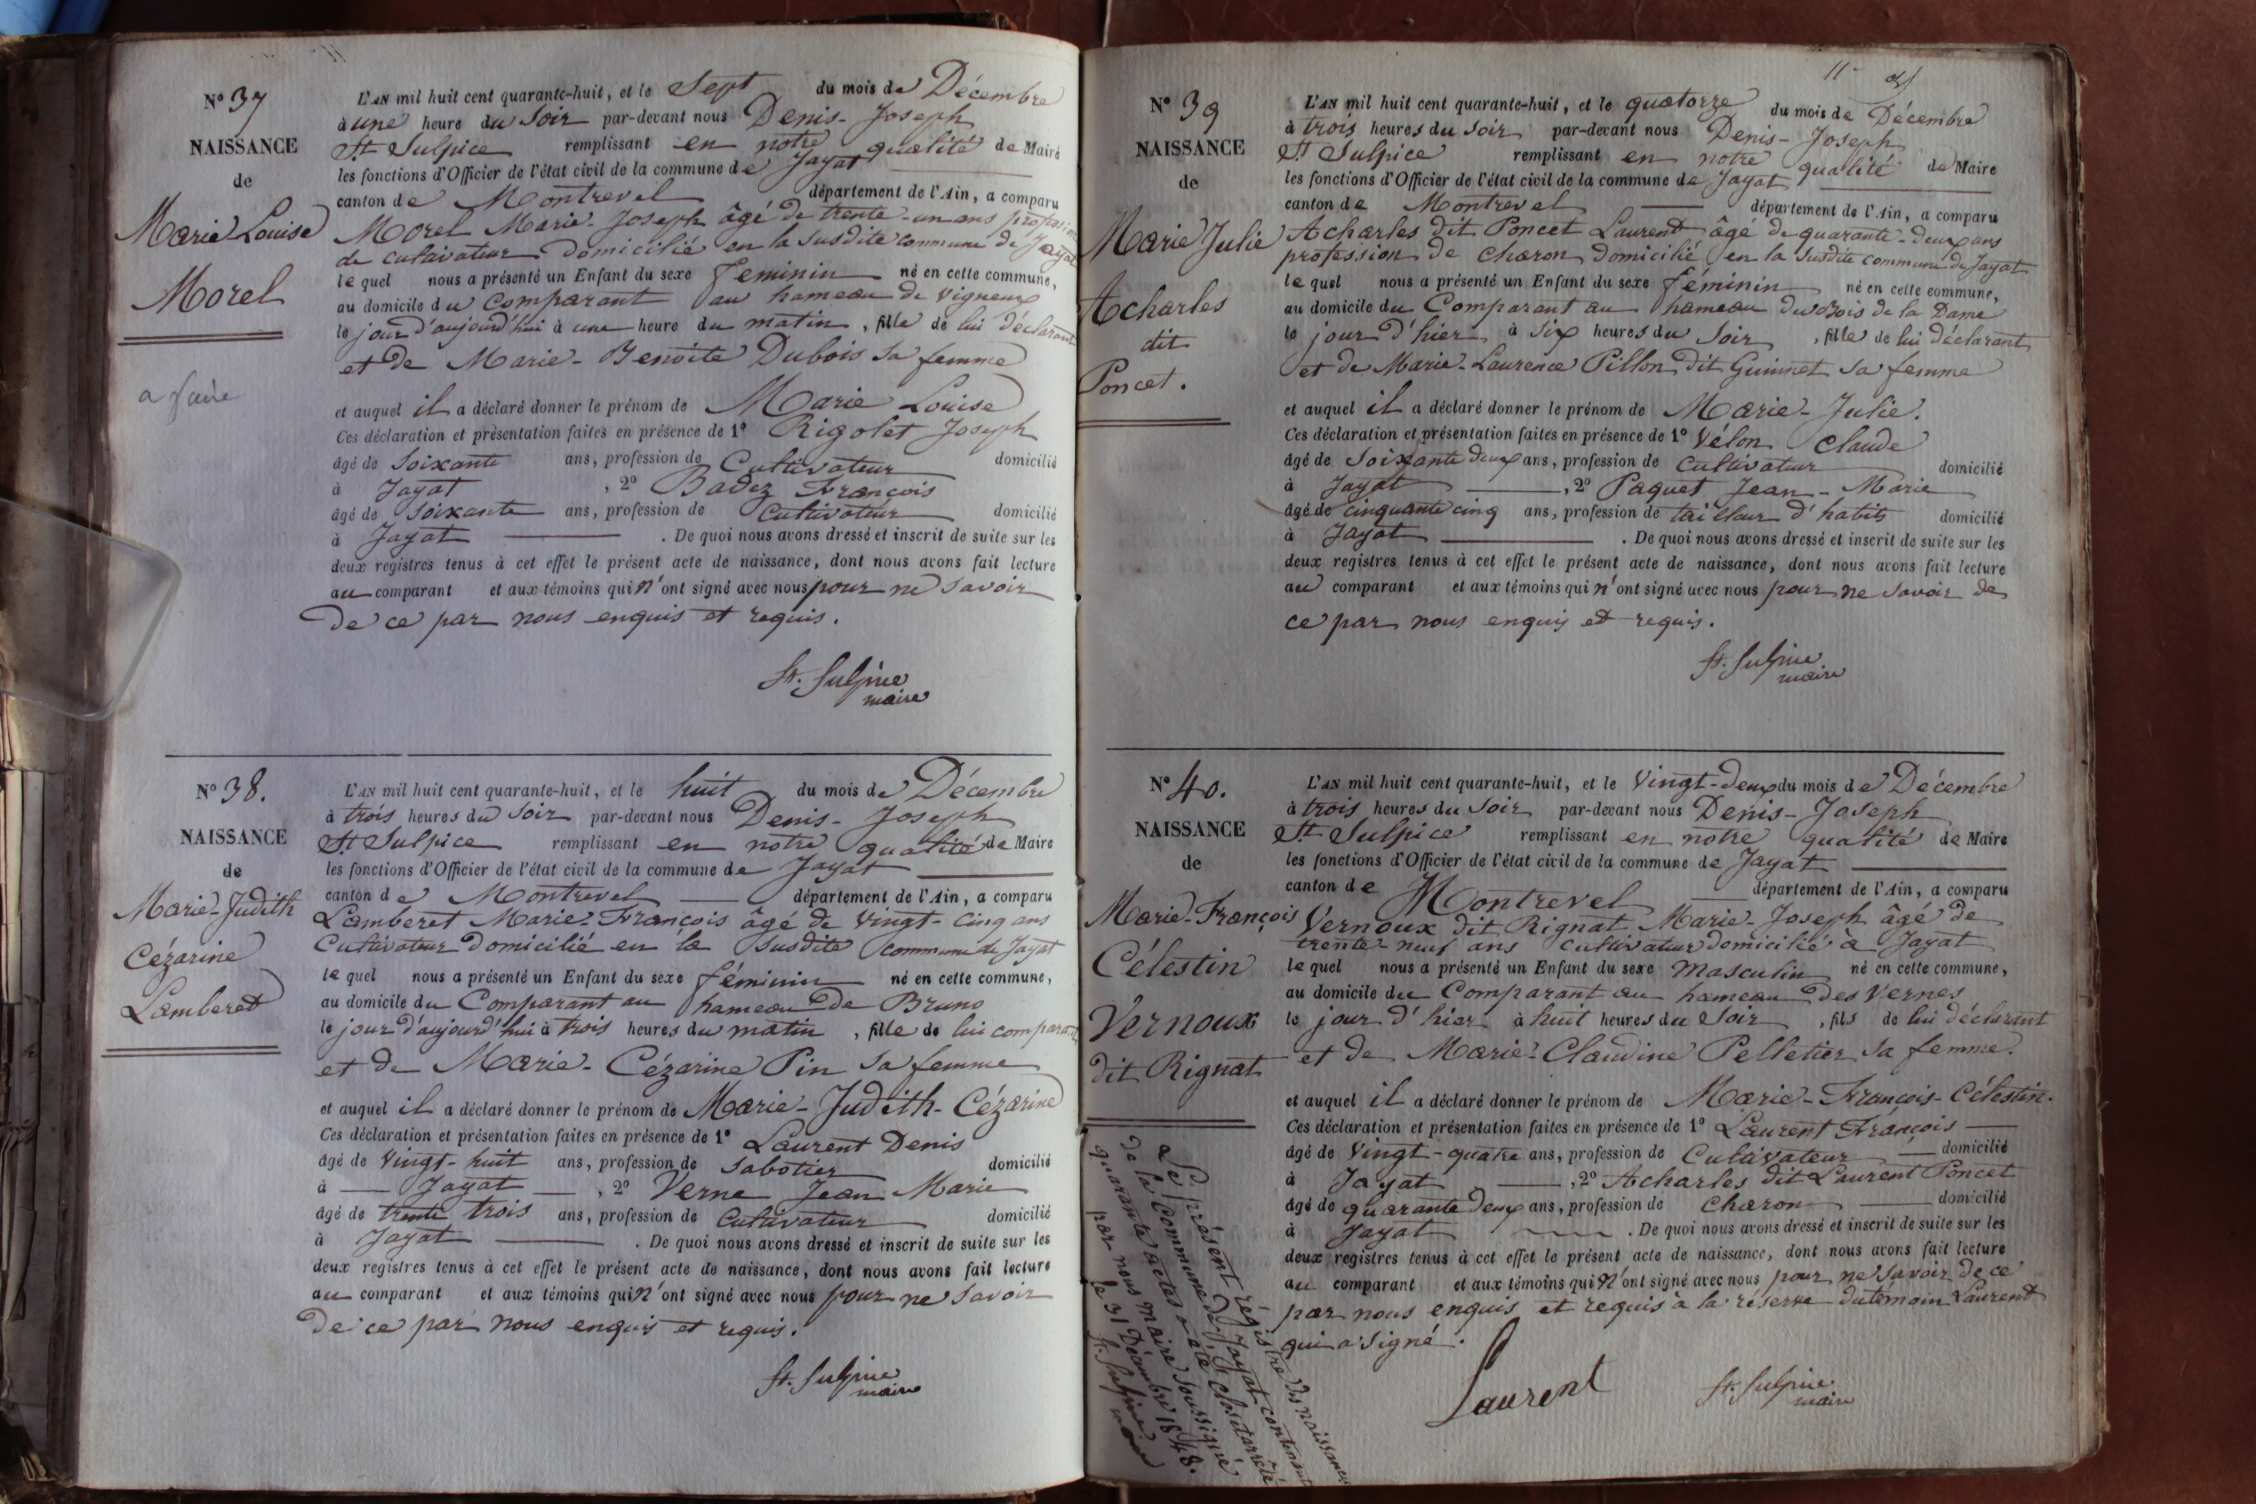 N° 37
NAISSANCE
de
Marie Louise
Morel
a faire
L'AN mil huit cent quarante-huit, et le Sept du mois de Décembre
à une heure du Soir par-devant nous Denis-Joseph
St Sulpice remplissant en notre qualité de Maire
les fonctions d'Officier de l'état civil de la commune de Jayat
canton de Montrevel département de l'Ain, a comparu
Morel Marie-Joseph âgé de trente-un ans profession
de cultivateur domicilié en la susdite commune de Jayat
lequel nous a présenté un Enfant du sexe Feminin né en cette commune,
au domicile du Comparant au hameau de Vigneux
le jour d'aujourd'hui à une heure du matin, fille de lui déclarant
et de Marie-Benoite Dubois sa femme
et auquel il a déclaré donner le prénom de Marie Louise
Ces déclaration et présentation faites en présence de 1° Rigolet Joseph
âgé de Soixante ans, profession de Cultivateur domicilié
à Jayat, 2° Badez François
âgé de Soixante ans, profession de Cultivateur domicilié
à Jayat. De quoi nous avons dressé et inscrit de suite sur les
deux registres tenus à cet effet le présent acte de naissance, dont nous avons fait lecture
au comparant et aux témoins qui n'ont signé avec nous pour ne savoir
de ce par nous enquis et requis.
St. Sulpice
maire
N° 38.
NAISSANCE
de
Marie-Judith
Cézarine
Lamberet
L'AN mil huit cent quarante-huit, et le huit du mois de Décembre
à trois heures du Soir par-devant nous Denis-Joseph
St Sulpice remplissant en notre qualité de Maire
les fonctions d'Officier de l'état civil de la commune de Jayat
canton de Montrevel département de l'Ain, a comparu
Lamberet Marie-François âgé de vingt-cinq ans
Cultivateur domicilié en la susdite commune de Jayat
lequel nous a présenté un Enfant du sexe féminin né en cette commune,
au domicile du Comparant au hameau de Bruno
le jour d'aujourd'hui à trois heures du matin, fille de lui comparant
et de Marie-Cézarine Pin sa femme
et auquel il a déclaré donner le prénom de Marie-Judith-Cézarine
Ces déclaration et présentation faites en présence de 1° Laurent Denis
âgé de Vingt-huit ans, profession de Sabotier domicilié
à Jayat, 2° Verne Jean Marie
âgé de trente trois ans, profession de Cultivateur domicilié
à Jayat. De quoi nous avons dressé et inscrit de suite sur les
deux registres tenus à cet effet le présent acte de naissance, dont nous avons fait lecture
au comparant et aux témoins qui n'ont signé avec nous pour ne savoir
de ce par nous enquis et requis.
St. Sulpice
maire
11
N° 39
NAISSANCE
de
Marie Julie
Acharles
dit
Poncet.
L'AN mil huit cent quarante-huit, et le quatorze du mois de Décembre
à trois heures du Soir par-devant nous Denis-Joseph
St Sulpice remplissant en notre qualité de Maire
les fonctions d'Officier de l'état civil de la commune de Jayat
canton de Montrevel département de l'Ain, a comparu
Acharles dit Poncet Laurent âgé de quarante-deux ans
profession de charon domicilié en la susdite commune de Jayat
lequel nous a présenté un Enfant du sexe féminin né en cette commune,
au domicile du Comparant au hameau du Bois de la Dame
le jour d'hier à Six heures du Soir, fille de lui déclarant
et de Marie-Laurence Pillon dit Guinnet sa femme
et auquel il a déclaré donner le prénom de Marie-Julie.
Ces déclaration et présentation faites en présence de 1° Vélon Claude
âgé de Soixante deux ans, profession de Cultivateur domicilié
à Jayat, 2° Paquet Jean-Marie
âgé de cinquante cinq ans, profession de tailleur d'habits domicilié
à Jayat. De quoi nous avons dressé et inscrit de suite sur les
deux registres tenus à cet effet le présent acte de naissance, dont nous avons fait lecture
au comparant et aux témoins qui n'ont signé avec nous pour ne savoir de
ce par nous enquis et requis.
St. Sulpice
maire
N° 40.
NAISSANCE
de
Marie-François
Célestin
Vernoux
dit Rignat
L'AN mil huit cent quarante-huit, et le Vingt-deux du mois de Décembre
à trois heures du Soir par-devant nous Denis-Joseph
St Sulpice remplissant en notre qualité de Maire
les fonctions d'Officier de l'état civil de la commune de Jayat
canton de Montrevel département de l'Ain, a comparu
Vernoux dit Rignat Marie-Joseph âgé de
trente-neuf ans cultivateur domicilié à Jayat
lequel nous a présenté un Enfant du sexe masculin né en cette commune,
au domicile du Comparant au hameau des Vernes
le jour d'hier à huit heures du Soir, fils de lui déclarant
et de Marie-Claudine Pelletier sa femme.
et auquel il a déclaré donner le prénom de Marie-François-Célestin.
Ces déclaration et présentation faites en présence de 1° Laurent François
âgé de Vingt-quatre ans, profession de Cultivateur domicilié
à Jayat, 2° Acharles dit Laurent Poncet
âgé de quarante deux ans, profession de charon domicilié
à Jayat. De quoi nous avons dressé et inscrit de suite sur les
deux registres tenus à cet effet le présent acte de naissance, dont nous avons fait lecture
au comparant et aux témoins qui n'ont signé avec nous pour ne savoir de ce
par nous enquis et requis à la réserve du témoin Laurent
qui a signé.
Laurent
St. Sulpice
maire
Le présent régistre des naissances
de la commune de Jayat contenant
quarante actes a été clos et arrêté
par nous maire soussigné
le 31 Décembre 1848.
St. Sulpice
maire